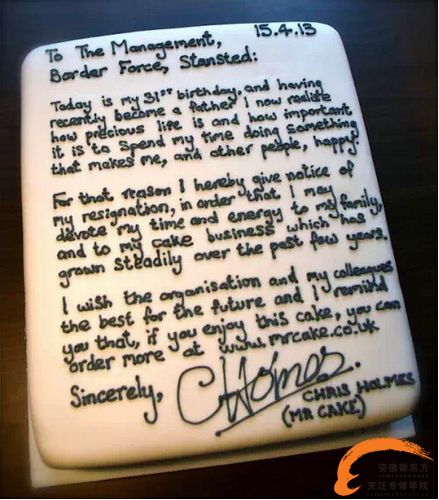 15.4.13
To The Management,
Border Force, Stansted:
Today is my 31st birthday, and having
recently become a father I now realise
how precious life is and how important
it is to spend my time doing something
that makes me, and other people, happy.
For that reason I hereby give notice of
my resignation, in order that I may
devote my time and energy to my family,
and to my cake business which has
grown steadily over the past few years.
I wish the organisation and my colleagues
the best for the future and I remind
you that, if you enjoy this cake, you can
order more at www.mrcake.co.uk
Sincerely, CHolmes.
CHRIS HOLMES
(MR CAKE)
安徽新东方
烹饪专修学院